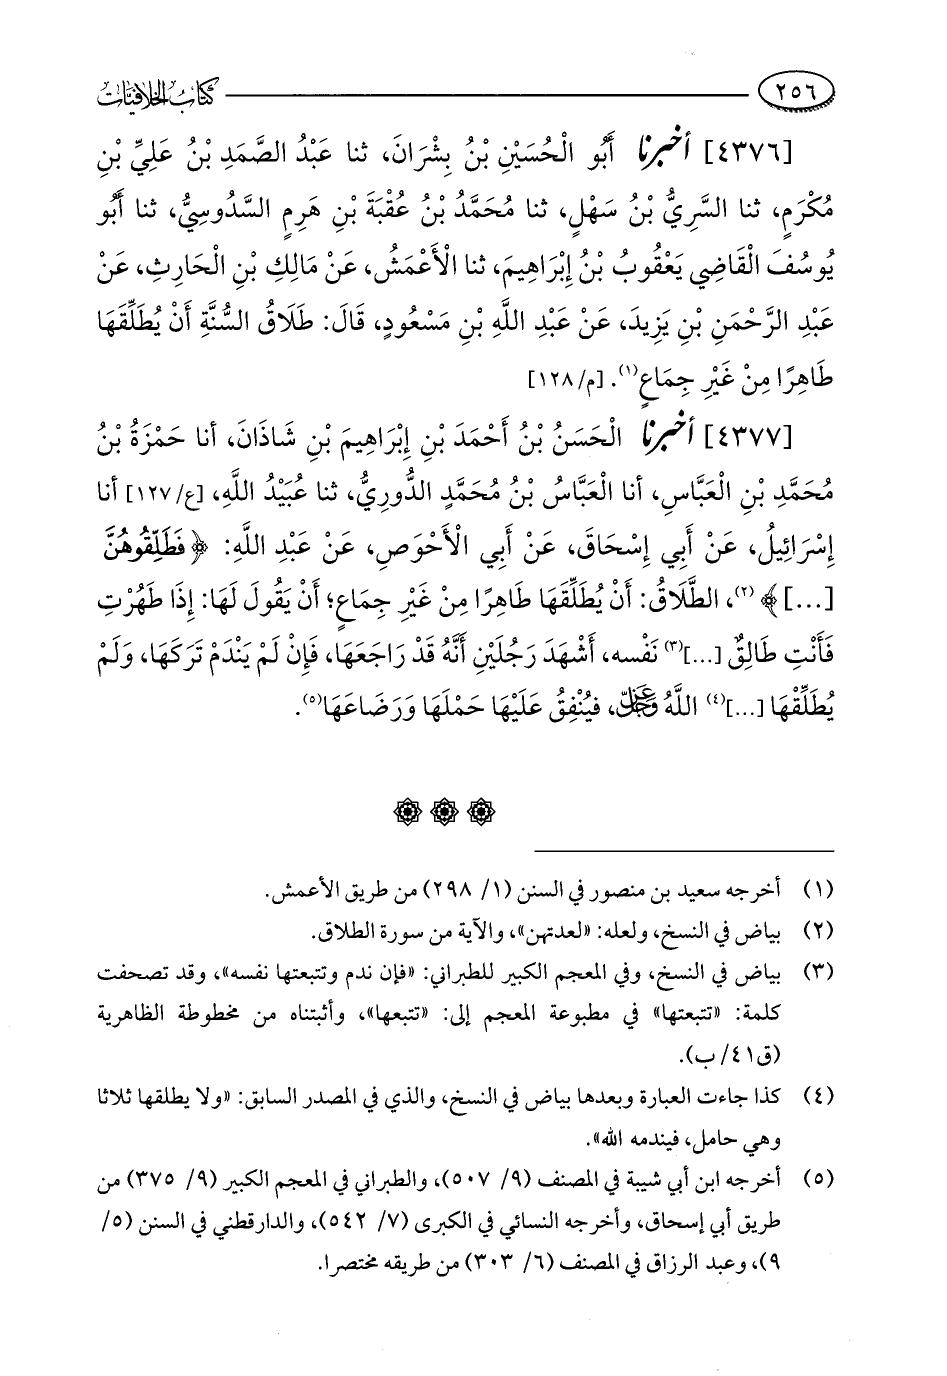 ٢٥٦ كتاب الخلافيات
[٤٣٧٦] أخبرنا أَبُو الْحُسَيْنِ بْنُ بِشْرَانَ، ثنا عَبْدُ الصَّمَدِ بْنُ عَلِيِّ بْنِ
مُكْرَمٍ، ثنا السَّرِيُّ بْنُ سَهْلٍ، ثنا مُحَمَّدُ بْنُ عُقْبَةَ بْنِ هَرِمٍ السَّدُوسِيُّ، ثنا أَبُو
يُوسُفَ الْقَاضِي يَعْقُوبُ بْنُ إِبْرَاهِيمَ، ثنا الْأَعْمَشُ، عَنْ مَالِكِ بْنِ الْحَارِثِ، عَنْ
عَبْدِ الرَّحْمَنِ بْنِ يَزِيدَ، عَنْ عَبْدِ اللَّهِ بْنِ مَسْعُودٍ، قَالَ: طَلَاقُ السُّنَّةِ أَنْ يُطَلِّقَهَا
طَاهِرًا مِنْ غَيْرِ جِمَاعٍ(١). [م/١٢٨]
[٤٣٧٧] أخبرنا الْحَسَنُ بْنُ أَحْمَدَ بْنِ إِبْرَاهِيمَ بْنِ شَاذَانَ، أنا حَمْزَةُ بْنُ
مُحَمَّدِ بْنِ الْعَبَّاسِ، أنا الْعَبَّاسُ بْنُ مُحَمَّدٍ الدُّورِيُّ، ثنا عُبَيْدُ اللَّهِ، [ع/١٢٧] أنا
إِسْرَائِيلُ، عَنْ أَبِي إِسْحَاقَ، عَنْ أَبِي الْأَحْوَصِ، عَنْ عَبْدِ اللَّهِ: ﴿فَطَلِّقُوهُنَّ
[...]﴾(٢)، الطَّلَاقُ: أَنْ يُطَلِّقَهَا طَاهِرًا مِنْ غَيْرِ جِمَاعٍ؛ أَنْ يَقُولَ لَهَا: إِذَا طَهُرْتِ
فَأَنْتِ طَالِقٌ [...](٣) نَفْسه، أَشْهَدَ رَجُلَيْنِ أَنَّهُ قَدْ رَاجَعَهَا، فَإِنْ لَمْ يَنْدَمْ تَرَكَهَا، وَلَمْ
يُطَلِّقْهَا [...](٤) اللَّهُ عَزَّ وَجَلَّ، فَيُنْفِقُ عَلَيْهَا حَمْلَهَا وَرَضَاعَهَا(٥).
(١) أخرجه سعيد بن منصور في السنن (١/ ٢٩٨) من طريق الأعمش.
(٢) بياض في النسخ، ولعله: «لعدتهن»، والآية من سورة الطلاق.
(٣) بياض في النسخ، وفي المعجم الكبير للطبراني: «فإن ندم وتتبعتها نفسه»، وقد تصحفت
كلمة: «تتبعتها» في مطبوعة المعجم إلى: «تتبعها»، وأثبتناه من مخطوطة الظاهرية
(ق٤١/ ب).
(٤) كذا جاءت العبارة وبعدها بياض في النسخ، والذي في المصدر السابق: «ولا يطلقها ثلاثا
وهي حامل، فيندمه الله».
(٥) أخرجه ابن أبي شيبة في المصنف (٩/ ٥٠٧)، والطبراني في المعجم الكبير (٩/ ٣٧٥) من
طريق أبي إسحاق، وأخرجه النسائي في الكبرى (٧/ ٥٤٢)، والدارقطني في السنن (٥/
٩)، وعبد الرزاق في المصنف (٦/ ٣٠٣) من طريقه مختصرا.